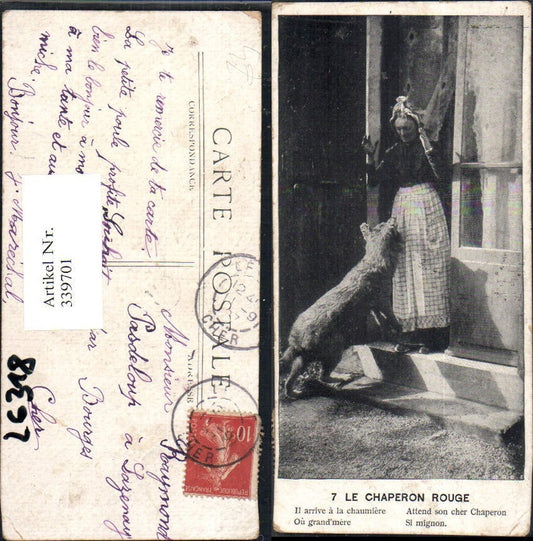 CARTE POSTALE
CORRESPONDANCE
ADRESSE
Je te remercie de ta carte.
La petite poule profite,
bien le bonjour à
à ma tante et au
Bonjour J. Maréchal
Artikel Nr.
339701
Monsieur Raymond
Pasdeloup à Lazenay
par Bourges
Cher
L6318
CHER
CHER
10
REPUBLIQUE FRANÇAISE
7 LE CHAPERON ROUGE
Il arrive à la chaumière
Où grand'mère
Attend son cher Chaperon
Si mignon.